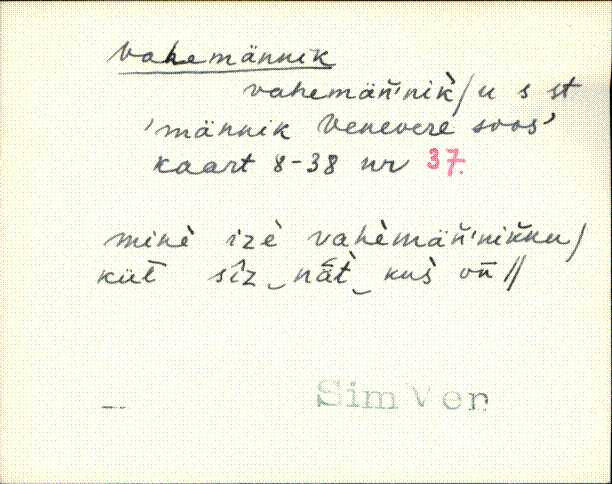 vahemännik
vahemäñ'nik̀/u s st
'männik Venevere soos'
kaart 8-38 nr 37.
minè izè vahèmäñ'nik̄ku/
küt̄ sîz‿nǟt̀‿kus̀ on̄//
-- Sim Ver